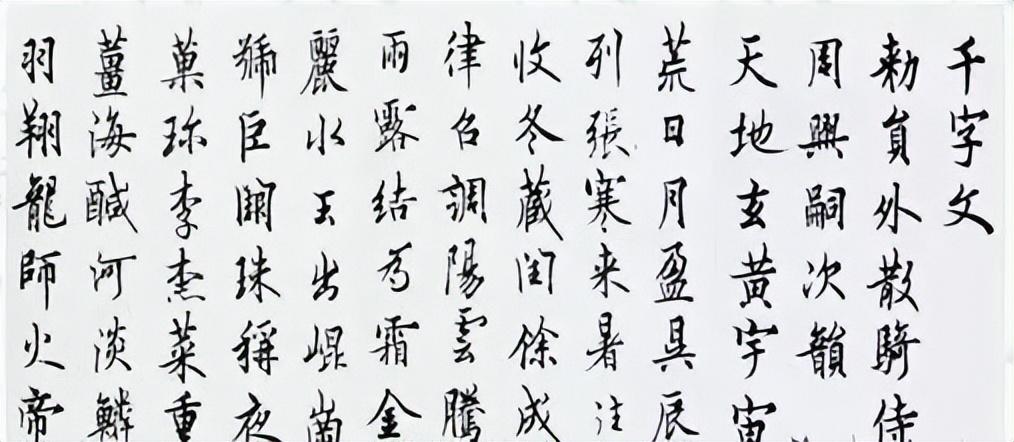 千字文
勅員外散騎侍
周興嗣次韻
天地玄黄宇宙
荒日月盈昃辰
列張寒来暑往
收冬藏閏餘成
律召調陽雲騰
雨露結為霜金
麗水玉出崐崗
號巨闕珠稱夜
菓珎李柰菜重
薑海醎河淡鱗
羽翔龍師火帝